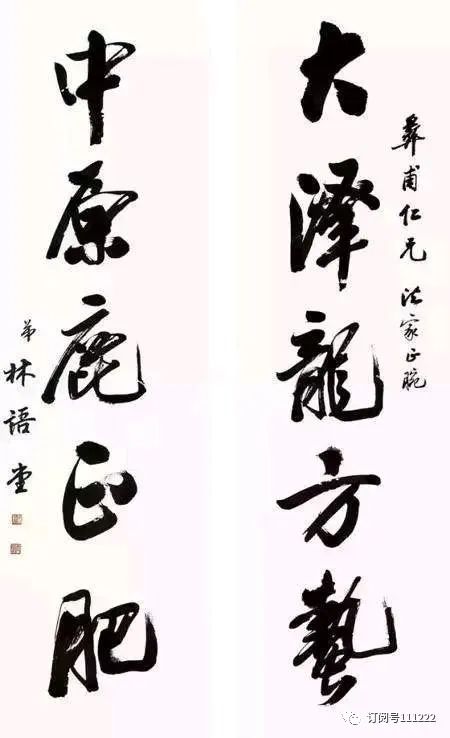 彝甫仁兄 法家正腕
大澤龍方蟄
中原鹿正肥
弟林語堂
订阅号111222